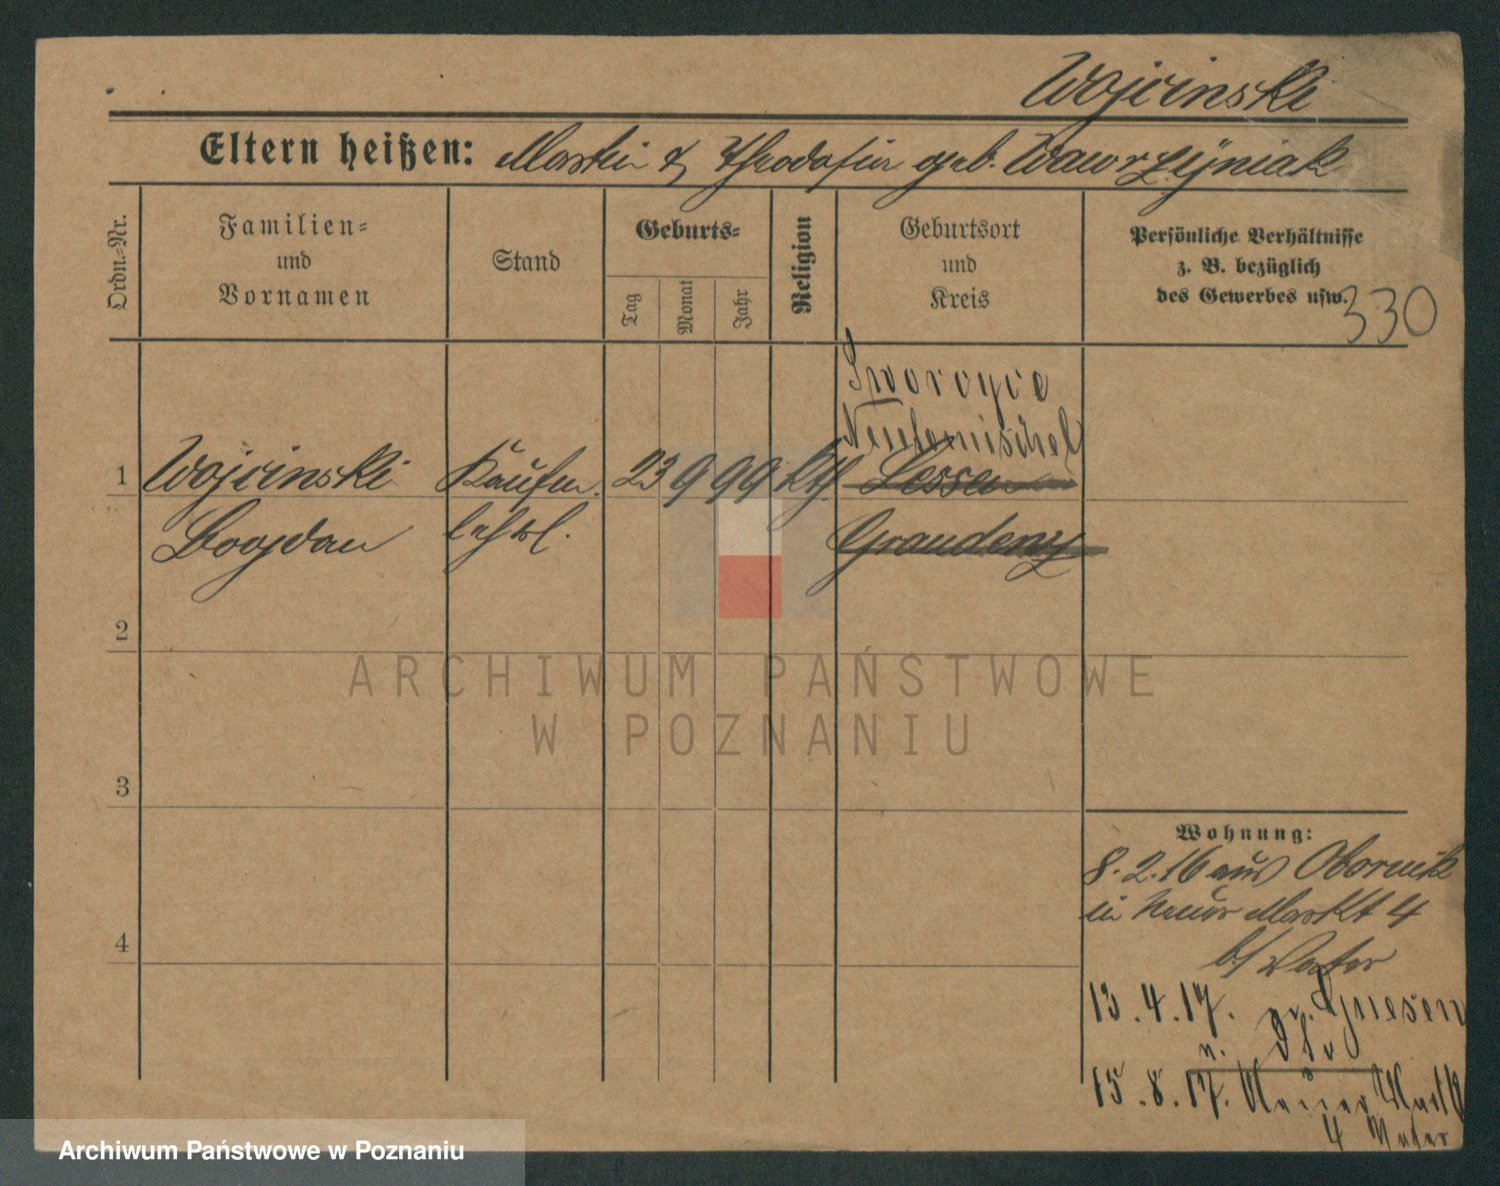 Wojcinski
Eltern heißen: Martin & Theodosia geb. Wawrzyniak
Ordn.-Nr.
Familien-
und
Vornamen
Stand
Geburts-
Tag
Monat
Jahr
Religion
Geburtsort
und
Kreis
Persönliche Verhältnisse
z. B. bezüglich
des Gewerbes usw.
330
Neutomischel
1 Wojcinski Kaufm. 23 9 99 kth Lessen
Bogdan lehrl. Graudenz
2
ARCHIWUM PAŃSTWOWE
W POZNANIU
3
Wohnung:
8.2.16 aus Obornik
in Neuer Markt 4
b/
4
13.4.17. Gnesen
15.8.17. Neuer Markt
4
Archiwum Państwowe w Poznaniu